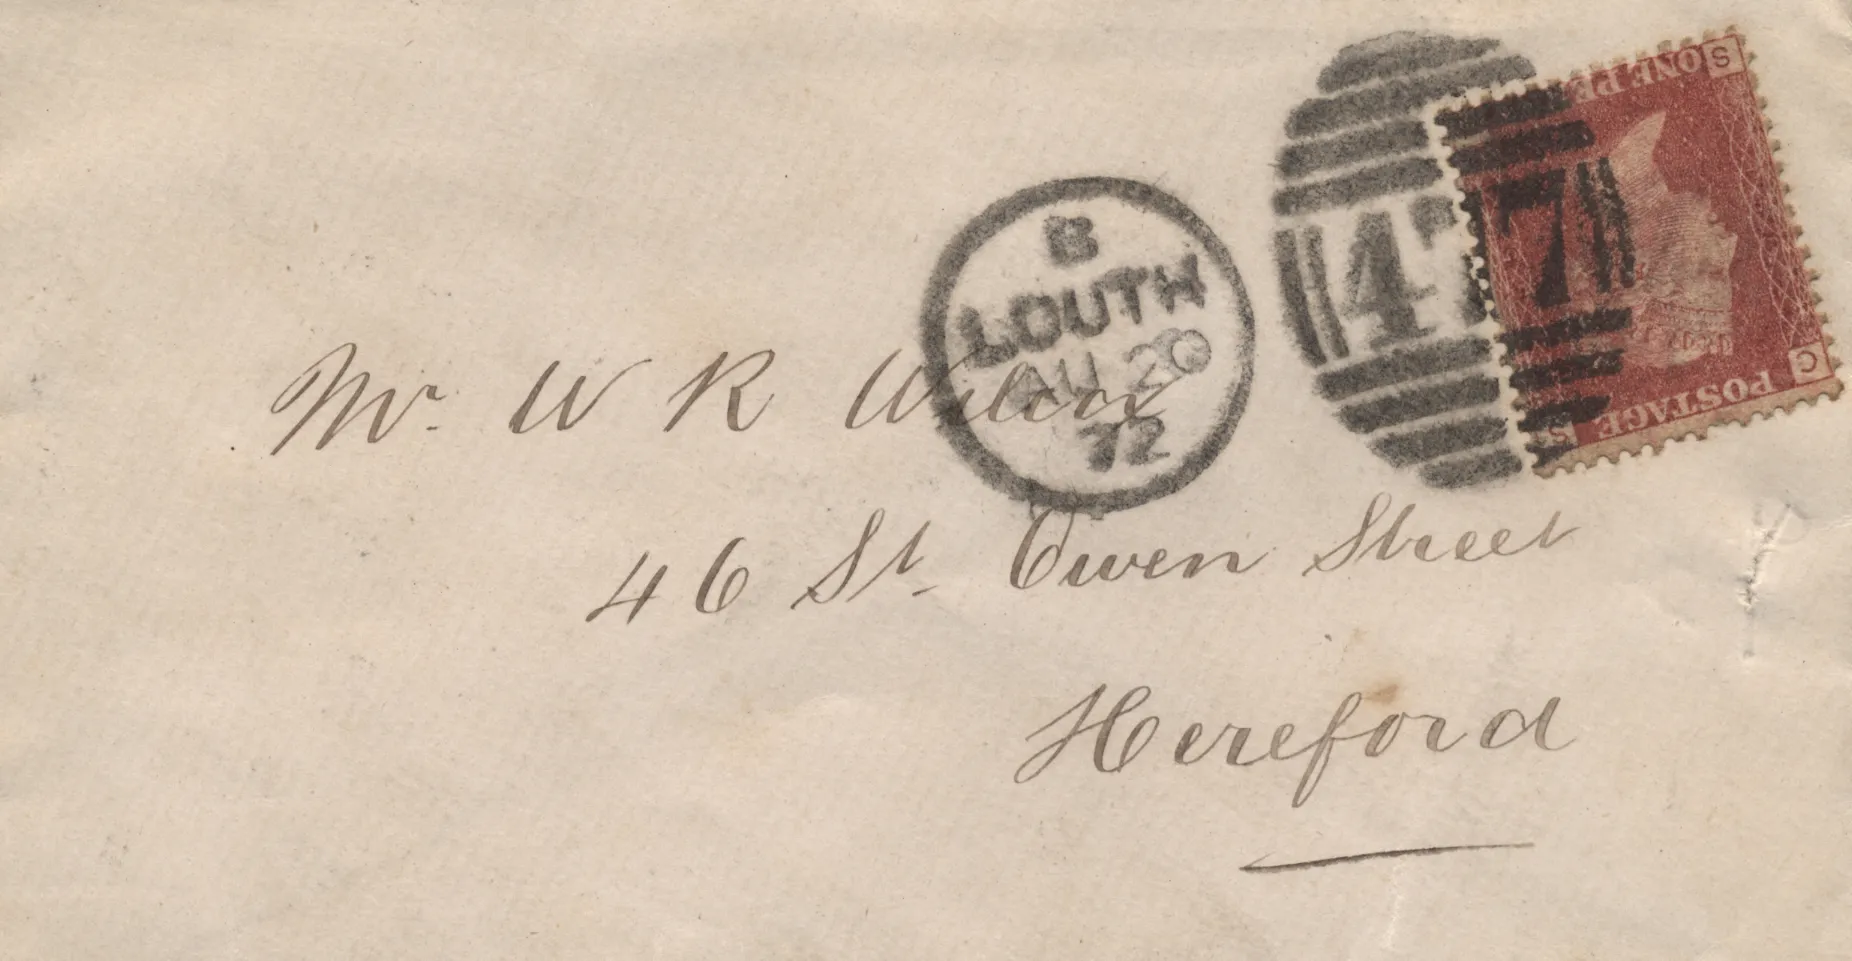 B
LOUTH
AU 20
72
477
ONE PE
S
C
POSTAGE
S
Mr. W R
46 St. Owen Street
Hereford